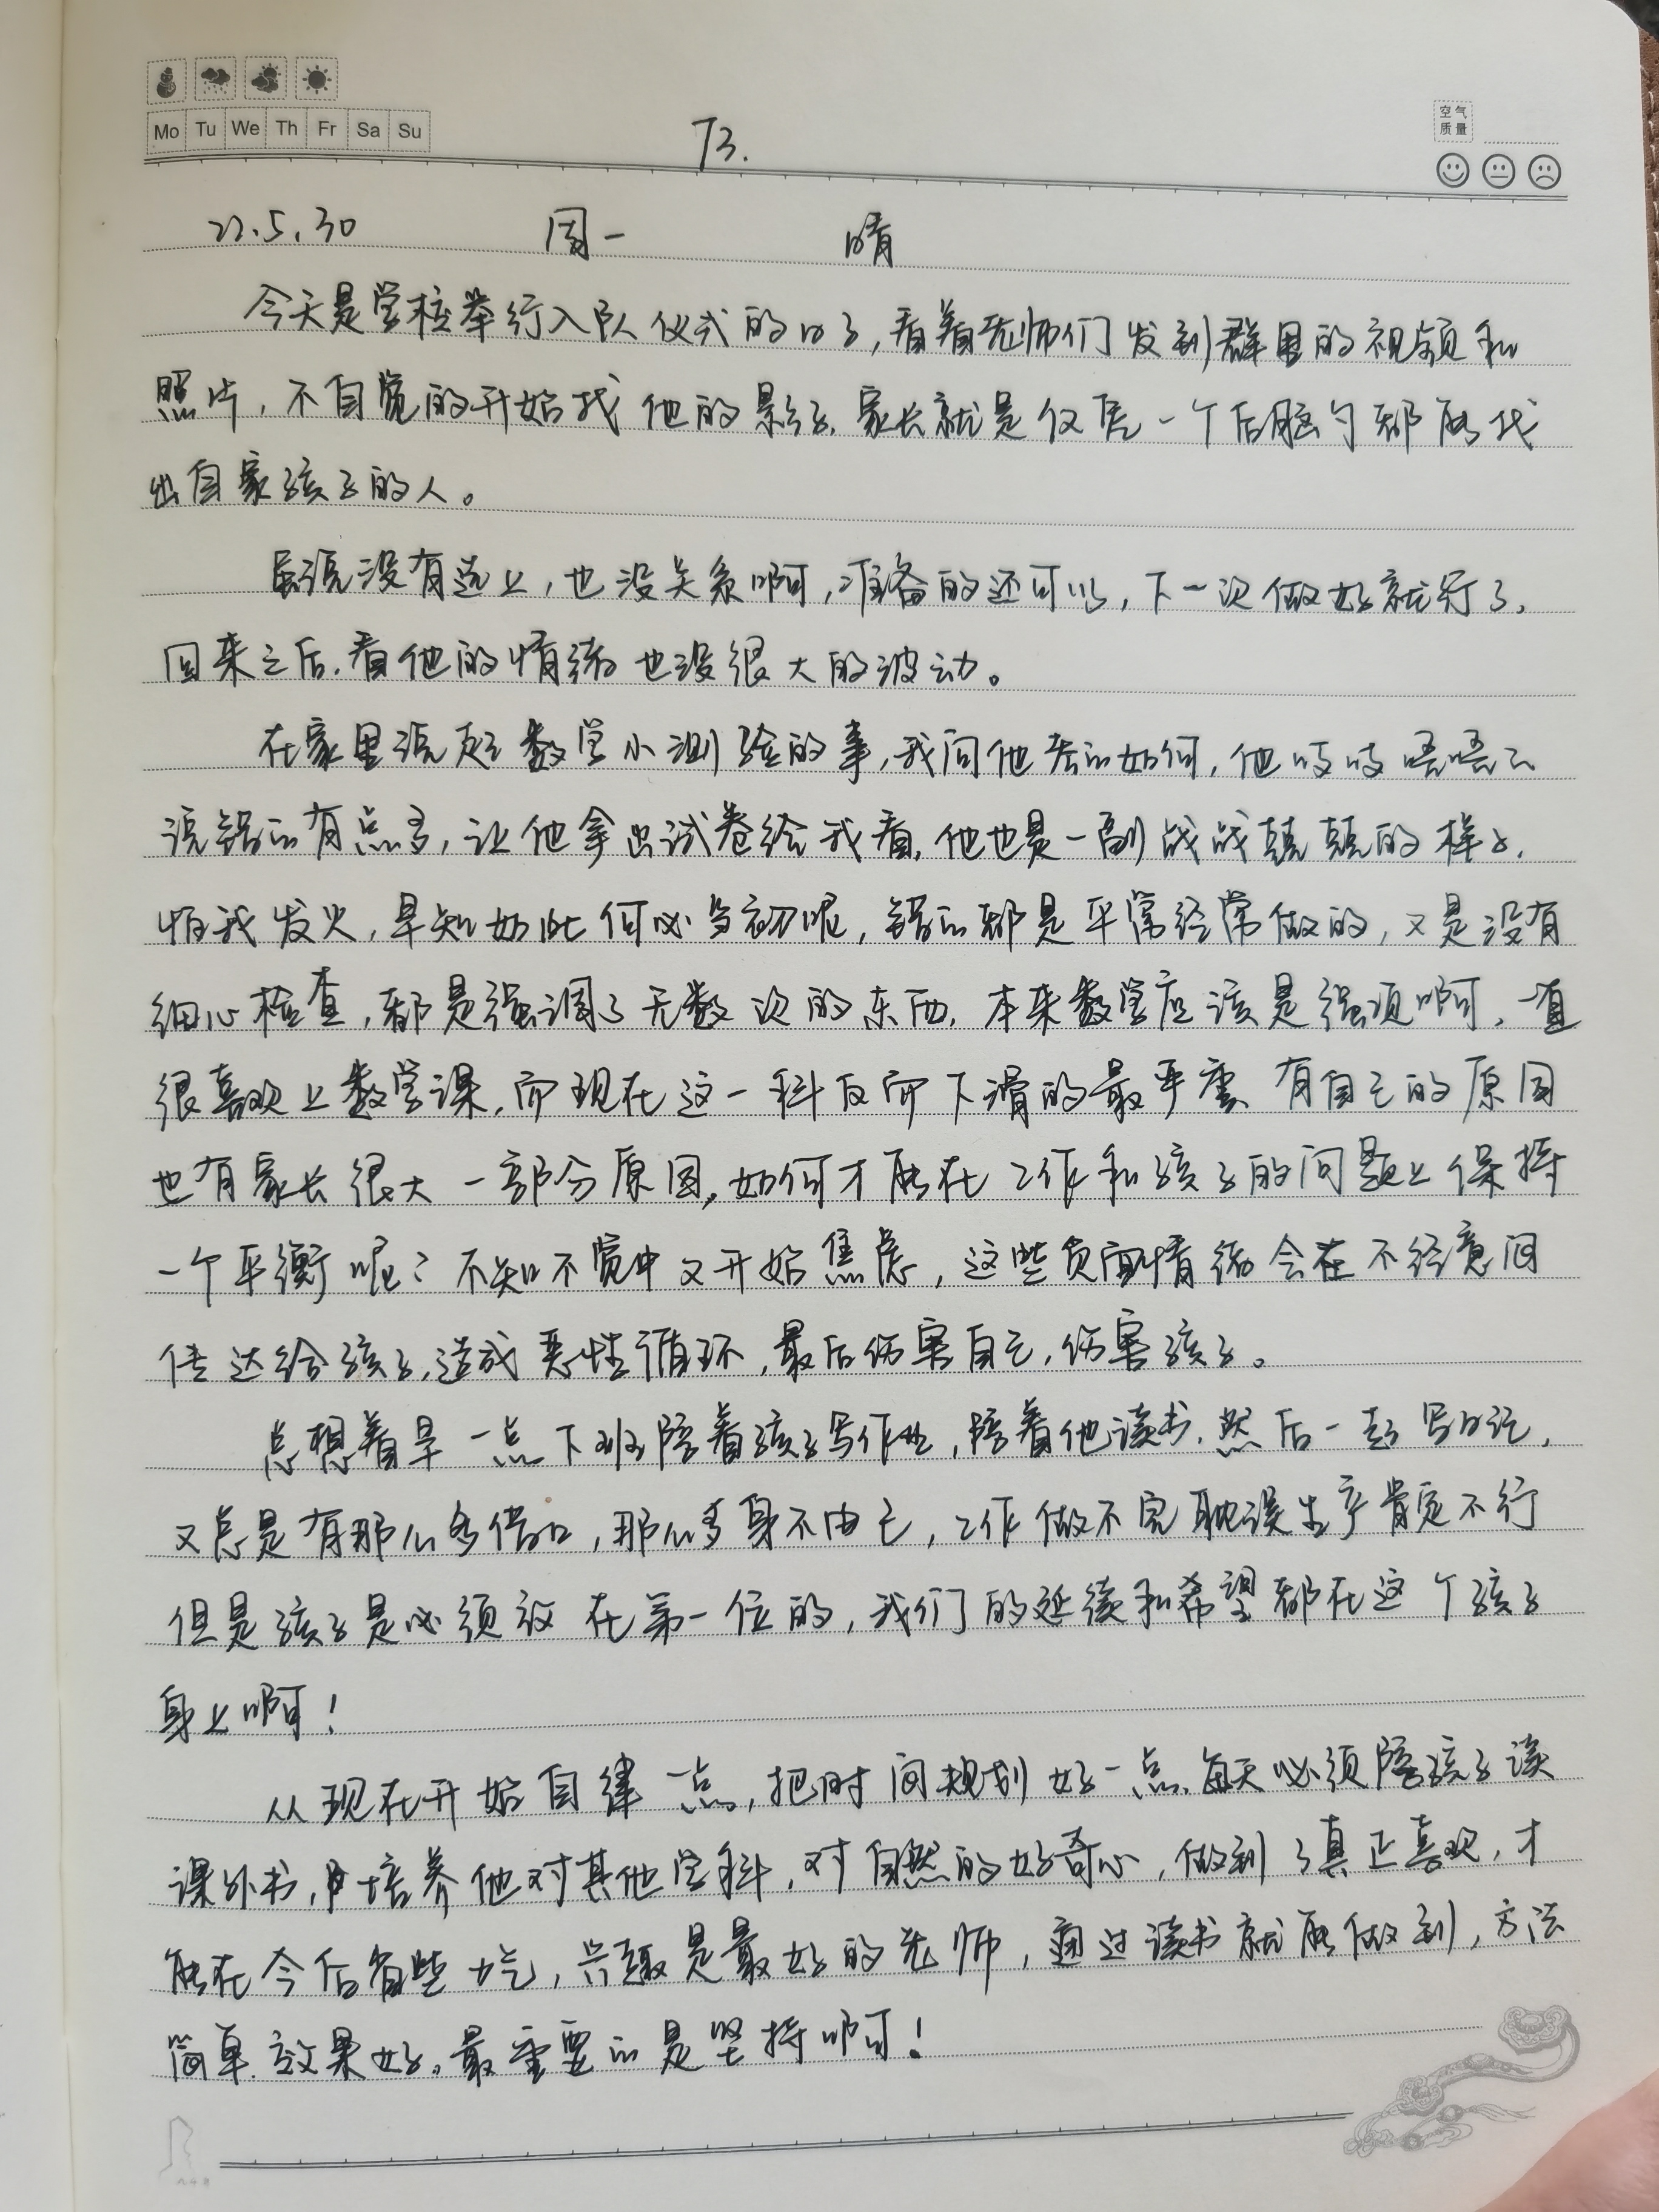 Mo Tu We Th Fr Sa Su
73.
空气
质量
22.5.30 周一 晴
今天是学校举行入队仪式的日子,看着老师们发到群里的视频和
照片,不自觉的开始找他的影子.家长就是仅凭一个后脑勺都能找
出自家孩子的人。
虽说没有选上,也没关系啊,准备的还可以,下一次做好就行了,
回来之后.看他的情绪也没很大的波动。
在家里说起数学小测验的事,我问他考的如何,他吱吱唔唔的
说错的有点多,让他拿出试卷给我看.他也是一副战战兢兢的样子.
怕我发火,早知如此何必当初呢,错的都是平常经常做的,又是没有
细心检查,都是强调了无数次的东西.本来数学应该是强项啊,一直
很喜欢上数学课,而现在这一科反而下滑的最严重、有自己的原因
也有家长很大一部分原因,如何才能在工作和孩子的问题上保持
一个平衡呢?不知不觉中又开始焦虑,这些负面情绪会在不经意间
传达给孩子,造成恶性循环,最后伤害自己,伤害孩子。
总想着早一点下班陪着孩子写作业,陪着他读书.然后一起写日记,
又总是有那么多借口,那么多身不由己,工作做不完耽误生产肯定不行
但是孩子是必须放在第一位的,我们的延续和希望都在这个孩子
身上啊!
从现在开始自律一点,把时间规划好一点.每天必须陪孩子读
课外书,培养他对其他学科,对自然的好奇心,做到了真正喜欢,才
能在今后省些力气,兴趣是最好的老师,通过读书就能做到,方法
简单.效果好。最重要的是坚持啊!